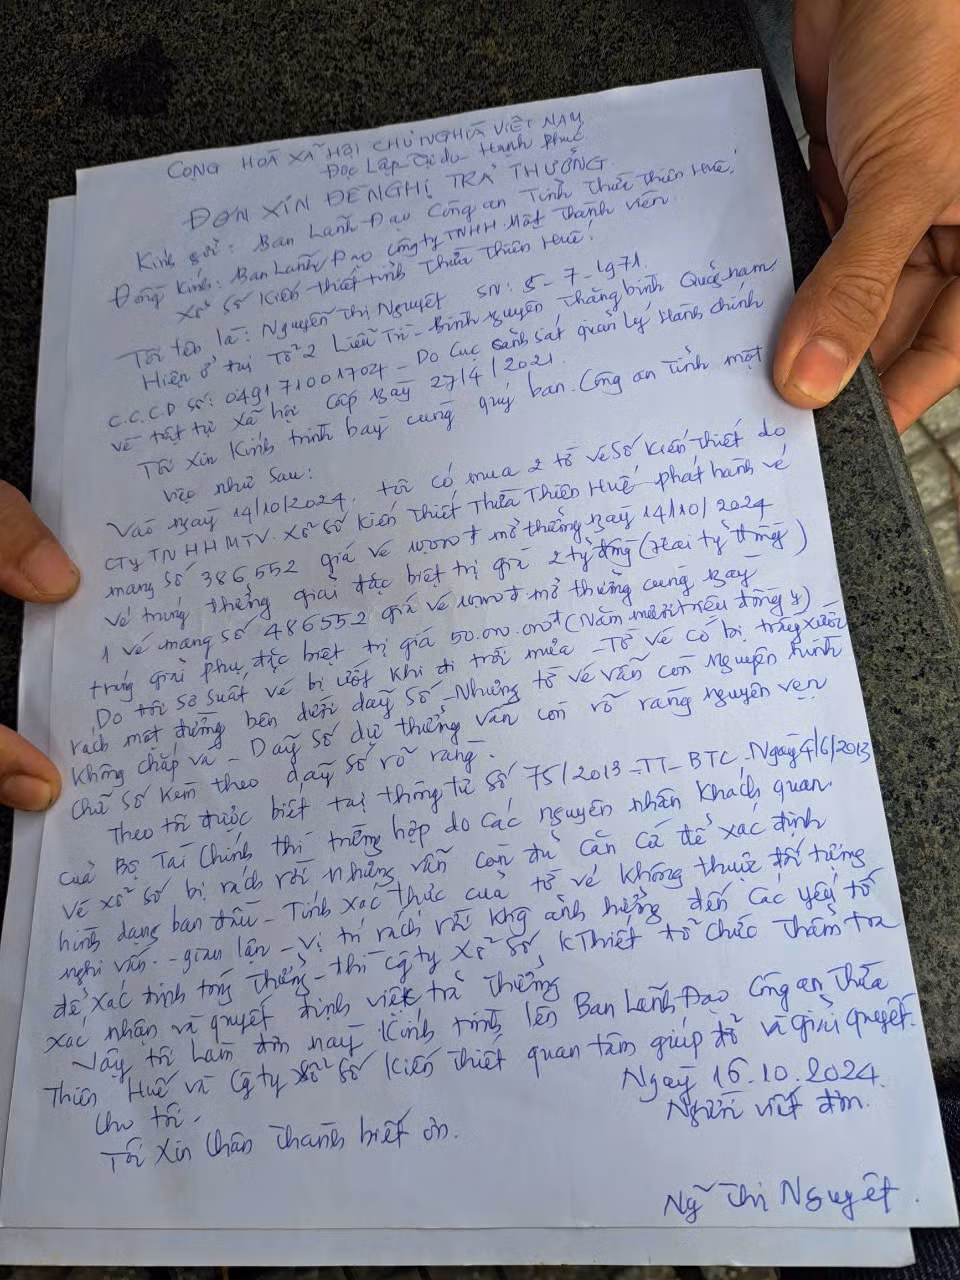 CỘNG HOÀ XÃ HỘI CHỦ NGHĨA VIỆT NAM
Độc Lập - Tự do - Hạnh Phúc
ĐƠN XIN ĐỀ NGHỊ TRẢ THƯỞNG
Kính gửi: Ban Lãnh Đạo Công an Tỉnh Thừa Thiên Huế.
Đồng Kính: Ban Lãnh Đạo Công ty TNHH Một Thành Viên
Xổ Số Kiến thiết tỉnh Thừa Thiên Huế.
Tôi tên là: Nguyễn Thị Nguyệt SN: 5-7-1971.
Hiện ở tại Tổ 2 Liễu Trì - Bình Nguyên Thăng bình Quảng nam
C.C.C.D số: 049171001702 - Do Cục cảnh sát quản lý Hành chính
về trật tự xã hội cấp ngày 27/4/2021.
Tôi xin Kính trình bày cùng quý ban. Công an tỉnh một
việc như sau:
Vào ngày 14/10/2024. tôi có mua 2 tờ vé số Kiến Thiết do
CTY TNHH MTV. Xổ số Kiến Thiết Thừa Thiên Huế phát hành vé
mang số 386552 giá vé 10.000đ mở thưởng ngày 14/10/2024
vé trúng thưởng giải đặc biệt trị giá 2 tỷ đồng (Hai tỷ đồng)
1 vé mang số 486552 giá vé 10.000đ mở thưởng cùng ngày
trúng giải phụ đặc biệt trị giá 50.000.000đ (Năm mươi triệu đồng y)
Do tôi sơ suất vé bị ướt khi đi trời mưa - Tờ vé có bị trầy xước
rách một đường bên dưới dãy số - Nhưng tờ vé vẫn còn nguyên hình
không chắp vá - Dãy số dự thưởng vẫn còn rõ ràng nguyên vẹn
Chữ số kèm theo dãy số rõ ràng.
Theo tôi được biết tại thông tư số 75/2013 - TT - BTC - Ngày 4/6/2013
của Bộ Tài Chính thì trường hợp do các nguyên nhân khách quan
vé xổ số bị rách rời nhưng vẫn còn đủ căn cứ để xác định
hình dạng ban đầu - Tính xác thực của tờ vé không thuộc đối tượng
nghi vấn - gian lận - vị trí rách rời khg ảnh hưởng đến các yếu tố
để xác định trúng thưởng - thì công ty Xổ Số KThiết tổ chức thẩm tra
xác nhận và quyết định việc trả thưởng
Vậy tôi làm đơn này Kính trình lên Ban Lãnh Đạo Công an Thừa
Thiên Huế và Công ty xổ số Kiến thiết quan tâm giúp đỡ và giải quyết.
cho tôi.
Tôi xin chân thành biết ơn.
Ngày 16.10.2024.
Người viết đơn.
Ng~ Thị Nguyệt.